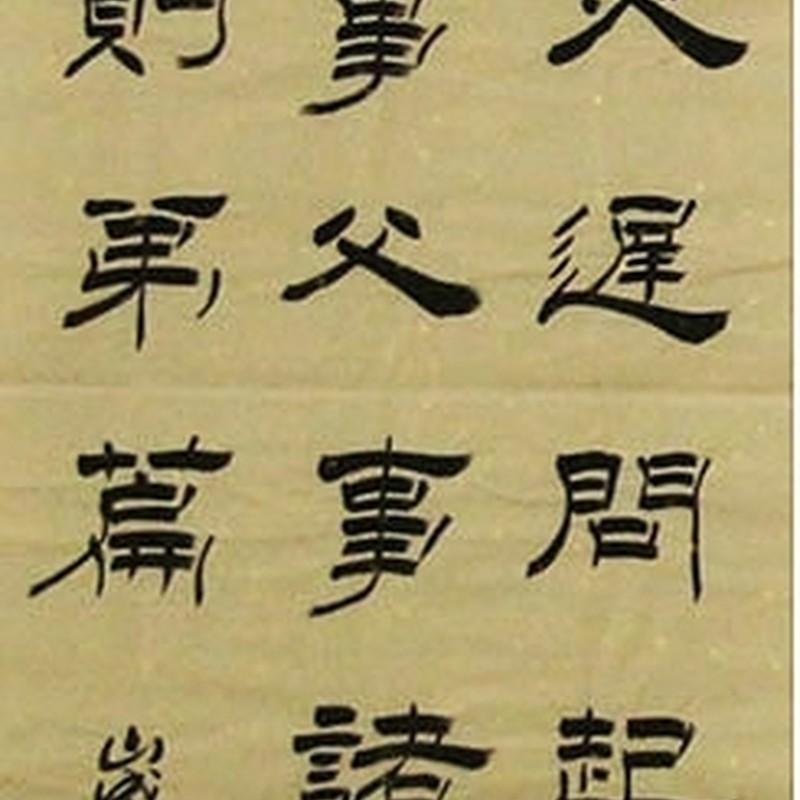 遲問起
事父事諸
則弟篇